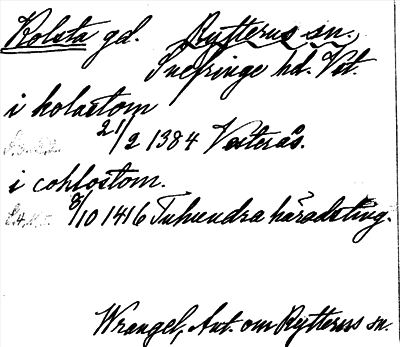 Kolsta gd. Rytterns sn.
Snefringe hd. Vst.
i kolastom
21/2 1384 Vesterås.
i cohlostom.
8/10 1416 Tuhundra häradsting.
Wrangel, Ant. om Rytterns sn.